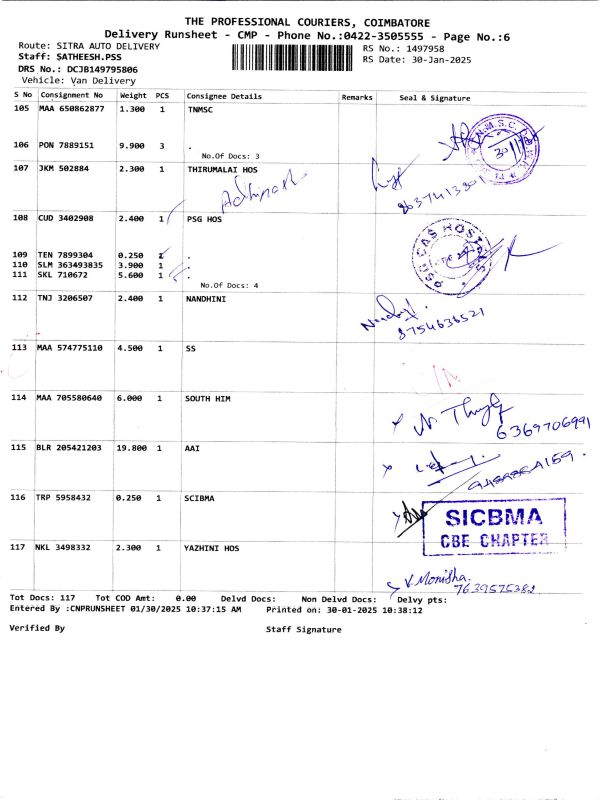 THE PROFESSIONAL COURIERS, COIMBATORE
Delivery Runsheet - CMP - Phone No.:0422-3505555 - Page No.:6
Route: SITRA AUTO DELIVERY
RS No.: 1497958
Staff: SATHEESH.PSS
RS Date: 30-Jan-2025
DRS No.: DCJB149795806
Vehicle: Van Delivery
S No Consignment No Weight PCS Consignee Details Remarks Seal & Signature
105 MAA 650862877 1.300 1 TNMSC
106 PON 7889151 9.900 3 .
No.Of Docs: 3
107 JKM 502884 2.300 1 THIRUMALAI HOS
8637413301
108 CUD 3402908 2.400 1 PSG HOS
109 TEN 7899304 0.250 1 .
110 SLM 363493835 3.900 1 .
111 SKL 710672 5.600 1 .
No.Of Docs: 4
112 TNJ 3206507 2.400 1 NANDHINI
8754636521
113 MAA 574775110 4.500 1 SS
114 MAA 705580640 6.000 1 SOUTH HIM
6369706991
115 BLR 205421203 19.800 1 AAI
116 TRP 5958432 0.250 1 SCIBMA
SICBMA
CBE CHAPTER
117 NKL 3498332 2.300 1 YAZHINI HOS
V. Monisha.
7639575382
Tot Docs: 117 Tot COD Amt: 0.00 Delvd Docs: Non Delvd Docs: Delvy pts:
Entered By :CNPRUNSHEET 01/30/2025 10:37:15 AM Printed on: 30-01-2025 10:38:12
Verified By Staff Signature